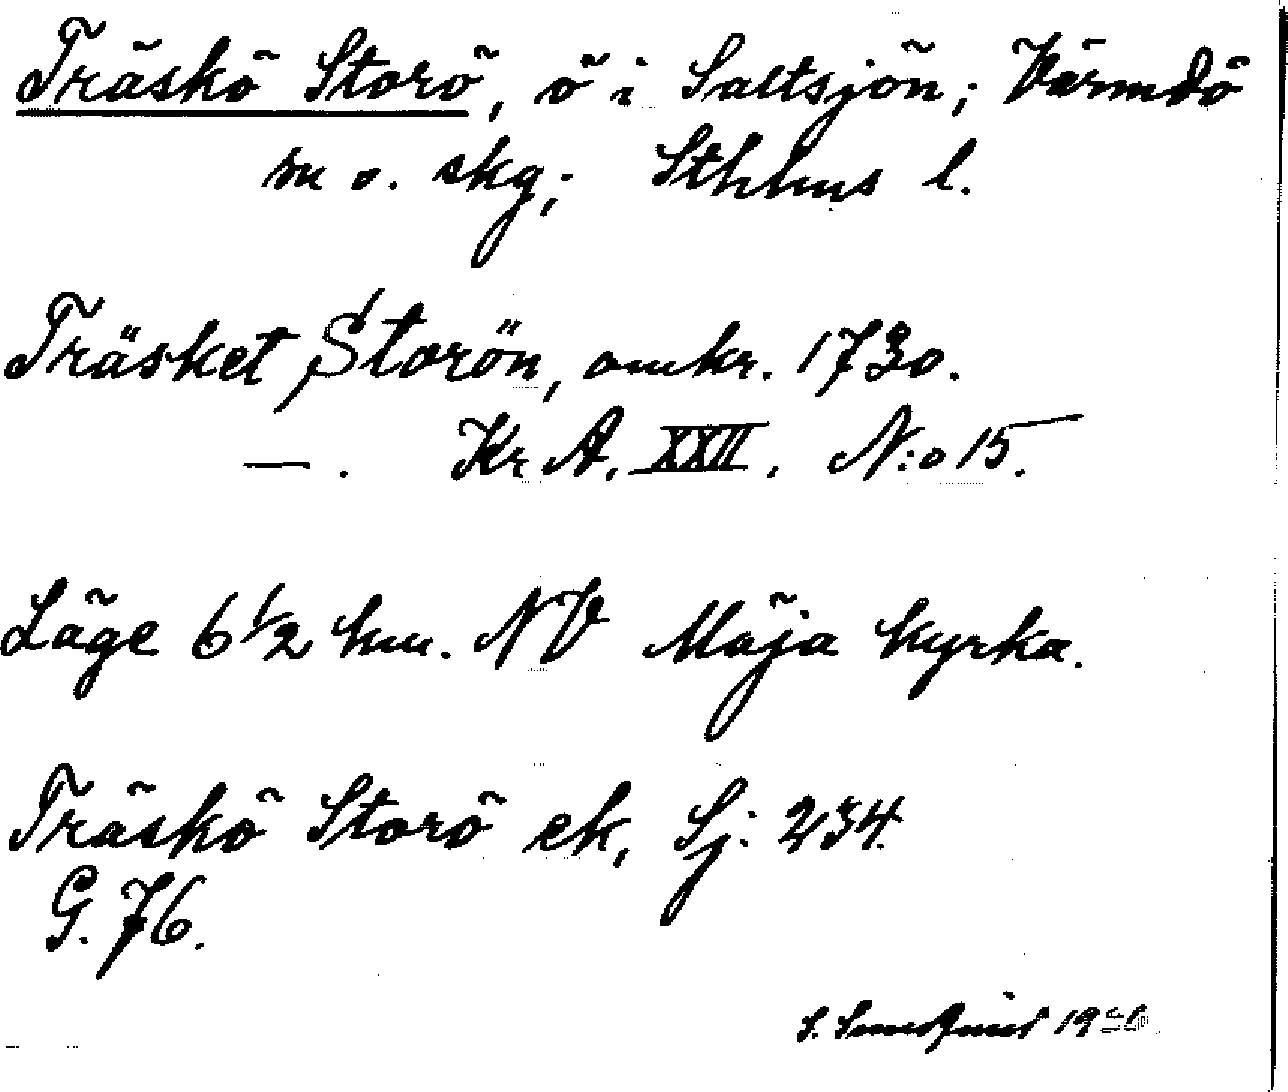 Träskö Storö, ö i Saltsjön; Värmdö
sn o. skg; Sthlms l.
Träsket Storön, omkr. 1730.
—. Kr. A. XXII. N:o 15.
Läge 6 1/2 km. NV Möja kyrka.
Träskö Storö ek, Sj: 234.
G. 76.
S.